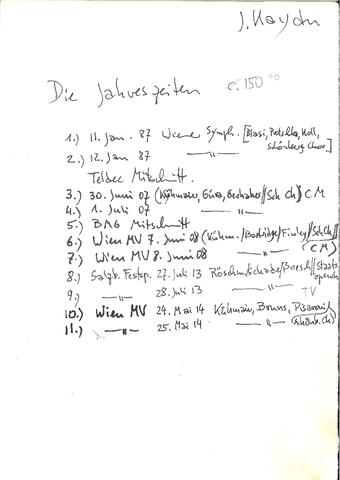 J. Haydn
Die Jahreszeiten c. 150 °°
1.) 11. Jan. 87 Wiener Symph. [Blasi, Protschka, Holl,
Schönberg Chor.]
2.) 12. Jan 87 —"—
Teldec Mitschnitt.
3.) 30. Juni 07 (Kühmaier, Güra, Gerhaher//Sch Ch) CM
4.) 1. Juli 07 —"—
5.) BMG Mitschnitt
6.) Wien MV 7. Juni 08 (Kühm./Bostridge/Finley//Sch.Ch//
7.) Wien MV 8. Juni 08 —"— (CM)
8.) Salzb. Festsp. 27. Juli 13 Röschm./Schade/Boesch//Staats
opernch
9.) —"— 28. Juli 13 —"— TV
10.) Wien MV 24. Mai 14 Kühmaier, Bruns, Pisaroni
11.) —"— 25. Mai 14 —"— (Schönb. Ch)